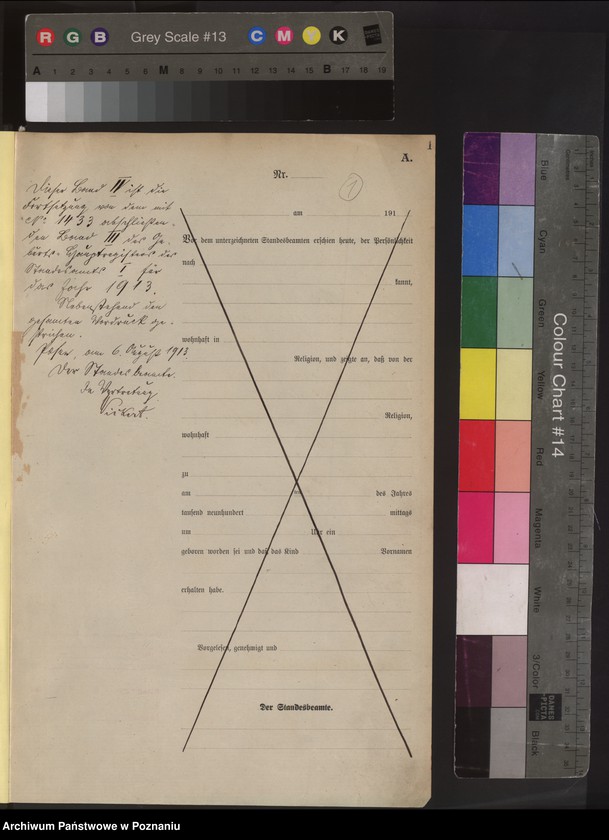 R G B Grey Scale #13 C M Y K
A 1 2 3 4 5 6 M 8 9 10 11 12 13 14 15 B 17 18 19
1
A.
Nr.
1
am 191
Vor dem unterzeichneten Standesbeamten erschien heute, der Persönlichkeit
nach
kannt,
wohnhaft in
Religion, und zeigte an, daß von der
Religion,
wohnhaft
zu
am des Jahres
tausend neunhundert mittags
um Uhr ein
geboren worden sei und daß das Kind Vornamen
erhalten habe.
Vorgelesen, genehmigt und
Der Standesbeamte.
Dieser Band IV ist die
Fortsetzung von dem mit
No 1433 abschließen-
den Band III des Ge-
burts-Hauptregisters des
Standesamts I für
das Jahr 1913.
Nebenstehend den
gesamten Vordruck ge-
strichen.
Posen, am 6. August 1913.
Der Standesbeamte.
In Vertretung
Colour Chart #14
Blue
Cyan
Green
Yellow
Red
Magenta
White
3/Color
Black
DANES
PICTA
Archiwum Państwowe w Poznaniu